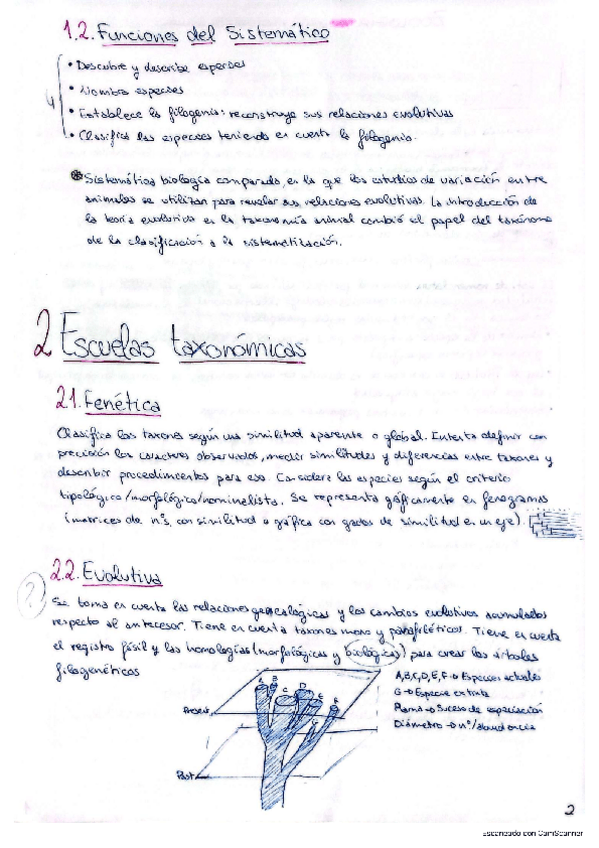 1.2. Funciones del Sistemático
• Descubre y describe especies
• Nombra especies
• Establece la filogenia: reconstruye sus relaciones evolutivas
• Clasifica las especies teniendo en cuenta la filogenia.
4
Sistemática biología comparada, en la que los estudios de variación entre
animales se utilizan para revelar sus relaciones evolutivas. La introducción de
la teoría evolutiva en la taxonomía animal cambió el papel del taxónomo
de la clasificación a la sistematización.
2 Escuelas taxonómicas
2.1. Fenética
Clasifica los taxones según una similitud aparente o global. Intenta definir con
precisión los caracteres observados, medir similitudes y diferencias entre taxones y
describir procedimientos para eso. Considera las especies según el criterio
tipológico/morfológico/nominalista. Se representa gráficamente en fenogramas
(matrices de nºs, con similitud o gráfica con grados de similitud en un eje).
2.2. Evolutiva
?
Se toma en cuenta las relaciones genealógicas y los cambios evolutivos acumulados
respecto al antecesor. Tiene en cuenta taxones mono y parafiléticos. Tiene en cuenta
el registro fósil y las homologías (morfológicas y biológicas) para crear los árboles
filogenéticos
A,B,C,D,E,F → Especies actuales
G → Especie extinta
Rama → Suceso de especiación
Diámetro → nº/abundancia
Present
Past
A B C D E F G
2
Escaneado con CamScanner